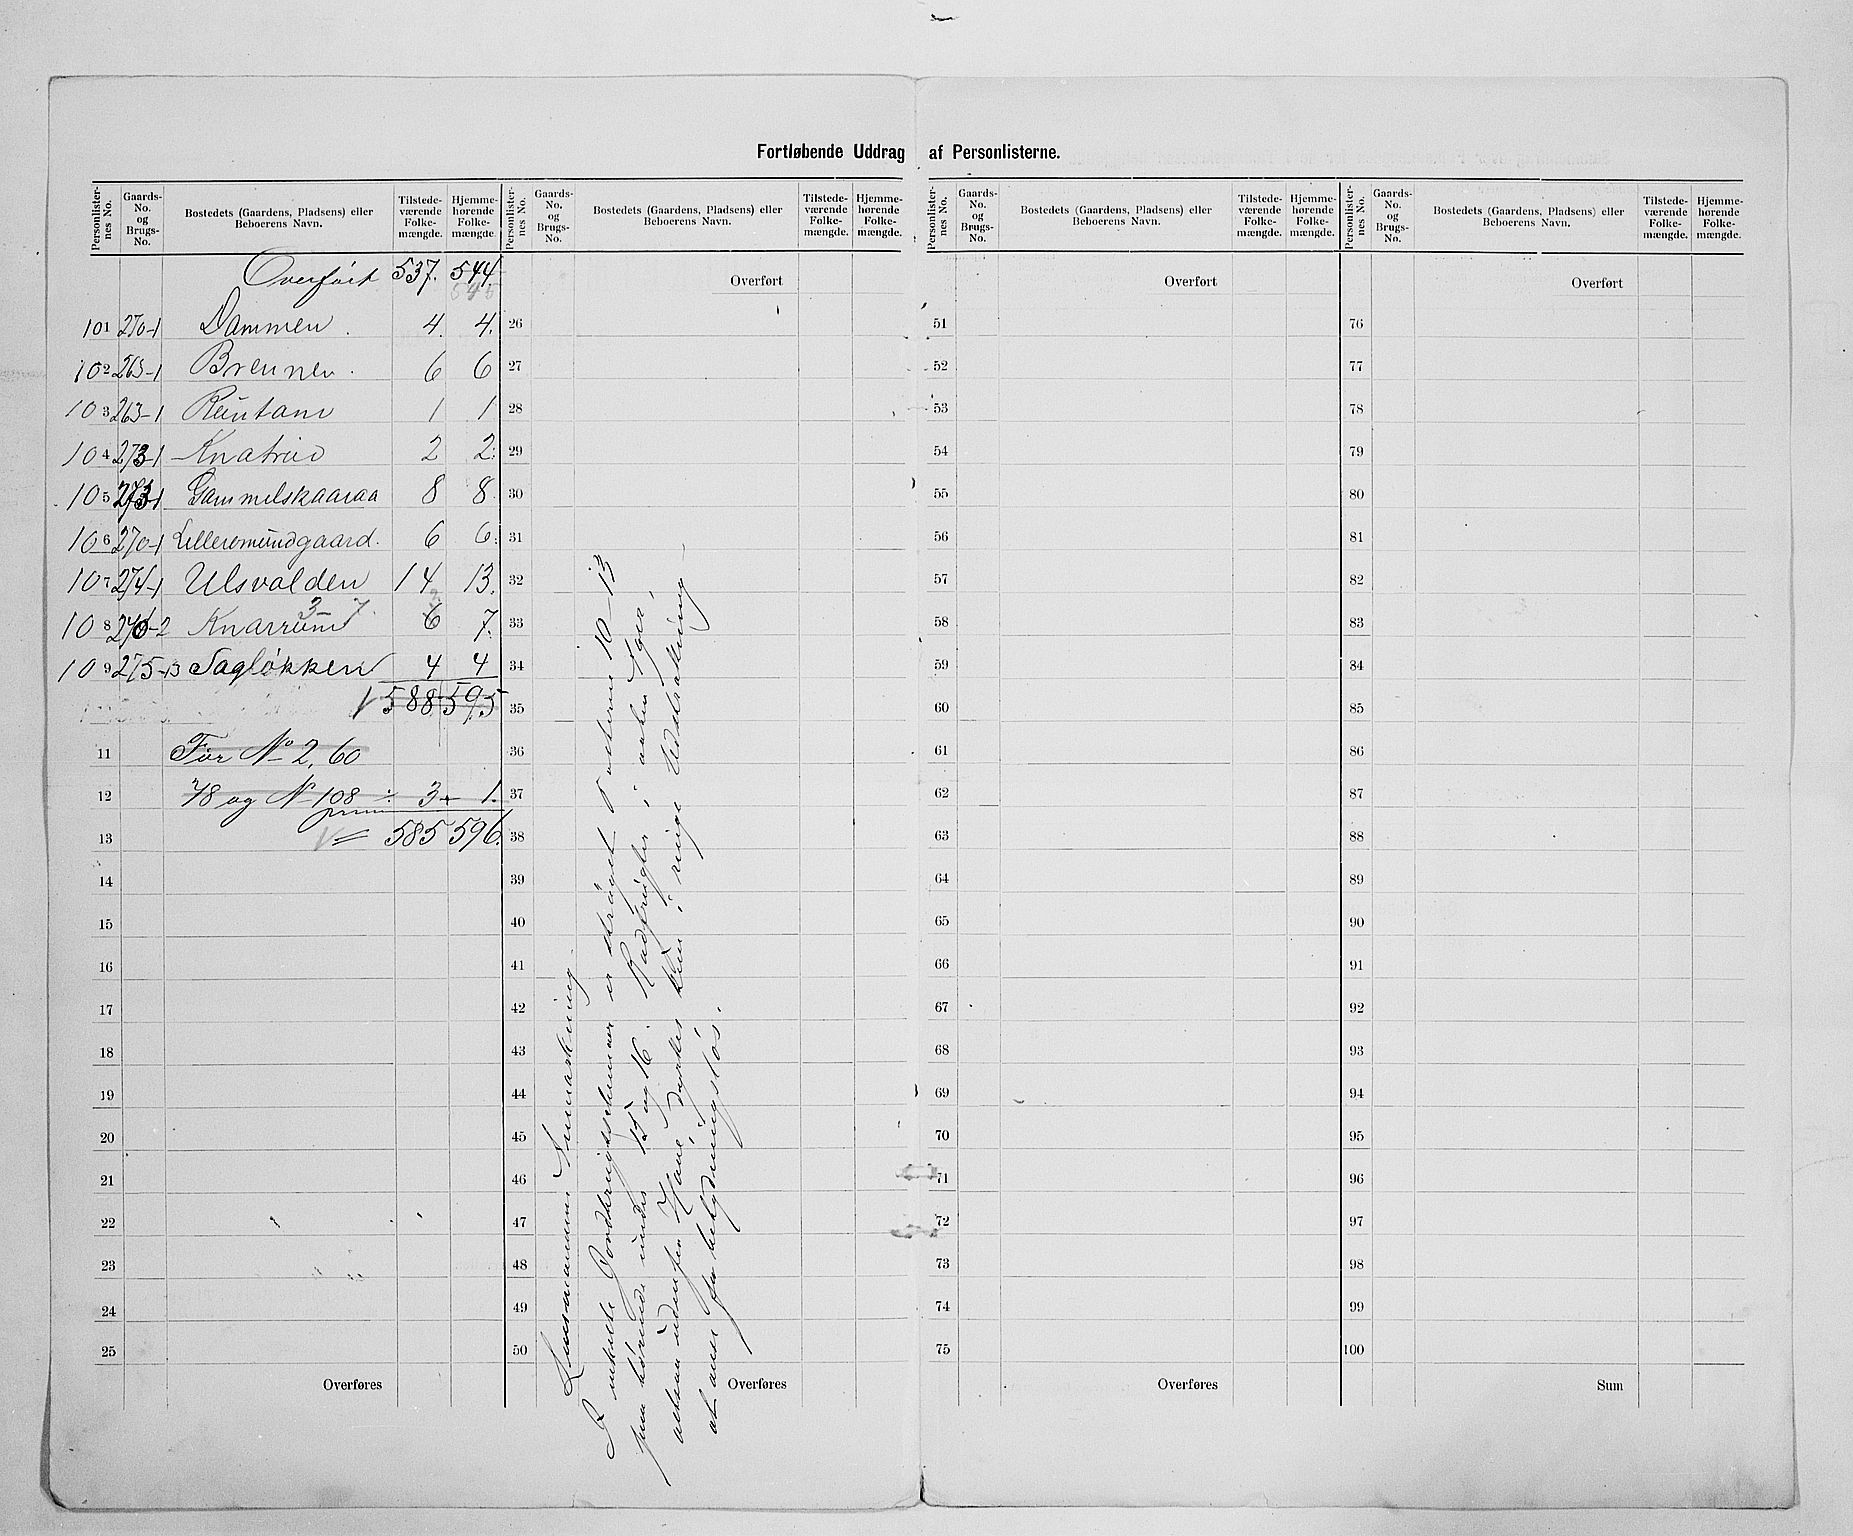 Fortløbende Uddrag af Personlisterne.
Personlister-nes No. | Gaards-No. og Brugs-No. | Bostedets (Gaardens, Pladsens) eller Beboerens Navn. | Tilstede-værende Folke-mængde. | Hjemme-hørende Folke-mængde.
Overført 537. 544.
545
101 270-1 Dammen. 4. 4.
102 263-1 Brennen. 6 6
103 263-1 1 1
104 273-1 Knatrud 2 2.
105 273-1 Gammelskaaraa 8 8
106 270-1 6 6.
107 274-1 Ulsvolden 14 13.
3 7.
108 276-2 Knarrum 6 7.
109 275-13 Sagløkken 4 4
588 595
11 For No 2, 60
12 78 og No 108 ÷ 3 + 1.
13 585 596.
14
15
16
17
18
19
20
21
22
23
24
25
Overføres
Personlister-nes No. | Gaards-No. og Brugs-No. | Bostedets (Gaardens, Pladsens) eller Beboerens Navn. | Tilstede-værende Folke-mængde. | Hjemme-hørende Folke-mængde.
Overført
26
27
28
29
30
31
32
33
34
35
36
37
38
39
40
41
42
43
44
45
46
47
48
49
50
Overføres
Lensmannens Anmærkning.
I enkelte Jordbrugsschemaer er strøget Posterne 10-13
hørende under 15 og 16. Rodfrugter i aaben Ager,
altsaa udenfor Have, dyrkes kun i ringe Udstrækning
at anse for betydningsløs.
Personlister-nes No. | Gaards-No. og Brugs-No. | Bostedets (Gaardens, Pladsens) eller Beboerens Navn. | Tilstede-værende Folke-mængde. | Hjemme-hørende Folke-mængde.
Overført
51
52
53
54
55
56
57
58
59
60
61
62
63
64
65
66
67
68
69
70
71
72
73
74
75
Overføres
Personlister-nes No. | Gaards-No. og Brugs-No. | Bostedets (Gaardens, Pladsens) eller Beboerens Navn. | Tilstede-værende Folke-mængde. | Hjemme-hørende Folke-mængde.
Overført
76
77
78
79
80
81
82
83
84
85
86
87
88
89
90
91
92
93
94
95
96
97
98
99
100
Sum